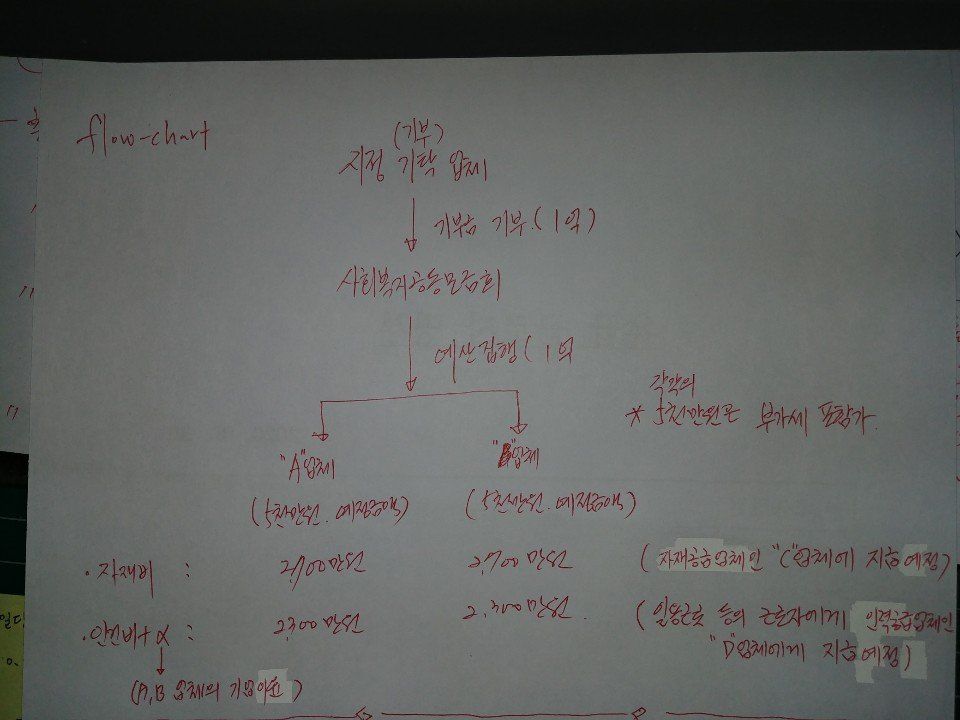 flow-chart
(기부)
지정 기탁 업체
기부금 기부 (1억)
사회복지공동모금회
예산집행 (1억
각각의
* 5천만원은 부가세 포함가.
"A"업체
"B"업체
(5천만원. 예정금액)
(5천만원. 예정금액)
· 자재비 :
2,700만원
2,700만원
(자재공급업체인 "C"업체에 지급예정)
· 인건비+α :
2,300만원
2,300만원
(일용근로 등의 근로자에게 인력공급업체인
"D"업체에게 지급예정)
(A, B 업체의 기업이윤)